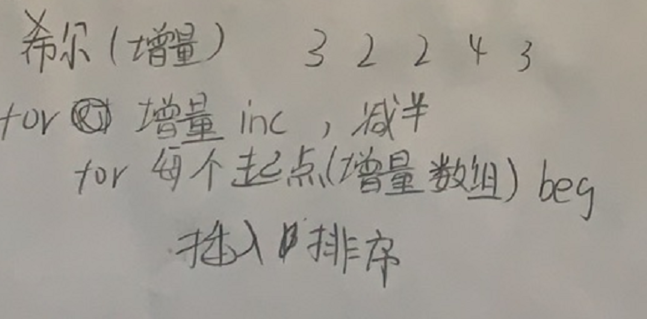 希尔(增量) 3 2 2 4 3
for 增量 inc , 减半
for 每个起点(增量数组) beg
插入排序